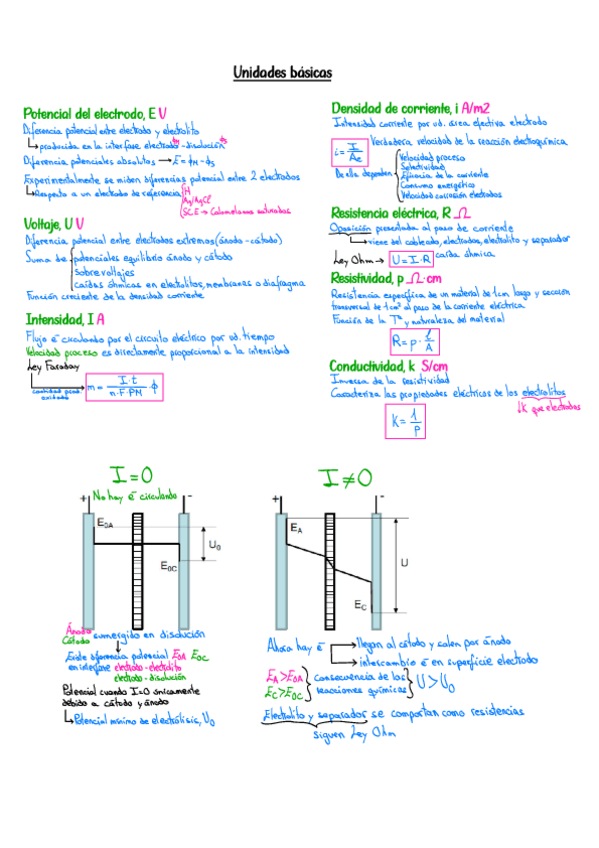 Unidades básicas
Potencial del electrodo, E V
Diferencia potencial entre electrodo y electrolito
producida en la interfase electrodo-disolución
Diferencia potenciales absolutos → E = ϕM - ϕS
Experimentalmente se miden diferencias potencial entre 2 electrodos
Respecto a un electrodo de referencia
H
Ag/AgCl
SCE → Calomelanos saturados
Voltaje, U V
Diferencia potencial entre electrodos extremos (ánodo-cátodo)
Suma de
potenciales equilibrio ánodo y cátodo
Sobrevoltajes
Caídas óhmicas en electrolitos, membranas o diafragma
Función creciente de la densidad corriente
Intensidad, I A
Flujo ē circulando por el circuito eléctrico por ud. tiempo
Velocidad proceso es directamente proporcional a la intensidad
Ley Faraday
cantidad prod. oxidado
m = I·t / n·F·PM · ϕ
Densidad de corriente, i A/m2
Intensidad corriente por ud. área efectiva electrodo
i = I / Ae
Verdadera velocidad de la reacción electroquímica
De ella dependen
Velocidad proceso
Selectividad
Eficacia de la corriente
Consumo energético
Velocidad corrosión electrodos
Resistencia eléctrica, R Ω
Oposición presentada al paso de corriente
viene del cableado, electrodos, electrolito y separador
Ley Ohm → U = I · R caída óhmica
Resistividad, p Ω·cm
Resistencia específica de un material de 1cm largo y sección
transversal de 1cm² al paso de la corriente eléctrica
Función de la Tª y naturaleza del material
R = p · l / A
Conductividad, k S/cm
Inversa de la resistividad
Caracteriza las propiedades eléctricas de los electrolitos
↓K que electrodos
K = 1 / p
I = 0
No hay ē circulando
+ -
E0A
U0
E0C
Ánodo
Cátodo
sumergido en disolución
Existe diferencia potencial E0A E0C
en interfase electrodo-electrolito
electrodo-disolución
Potencial cuando I=0 únicamente
debido a cátodo y ánodo
Potencial mínimo de electrólisis, U0
I ≠ 0
+ -
EA
U
EC
Ahora hay ē
llegan al cátodo y salen por ánodo
intercambio ē en superficie electrodo
EA > E0A
EC > E0C
consecuencia de las
reacciones químicas
U > U0
Electrolito y separador se comportan como resistencias
siguen Ley Ohm